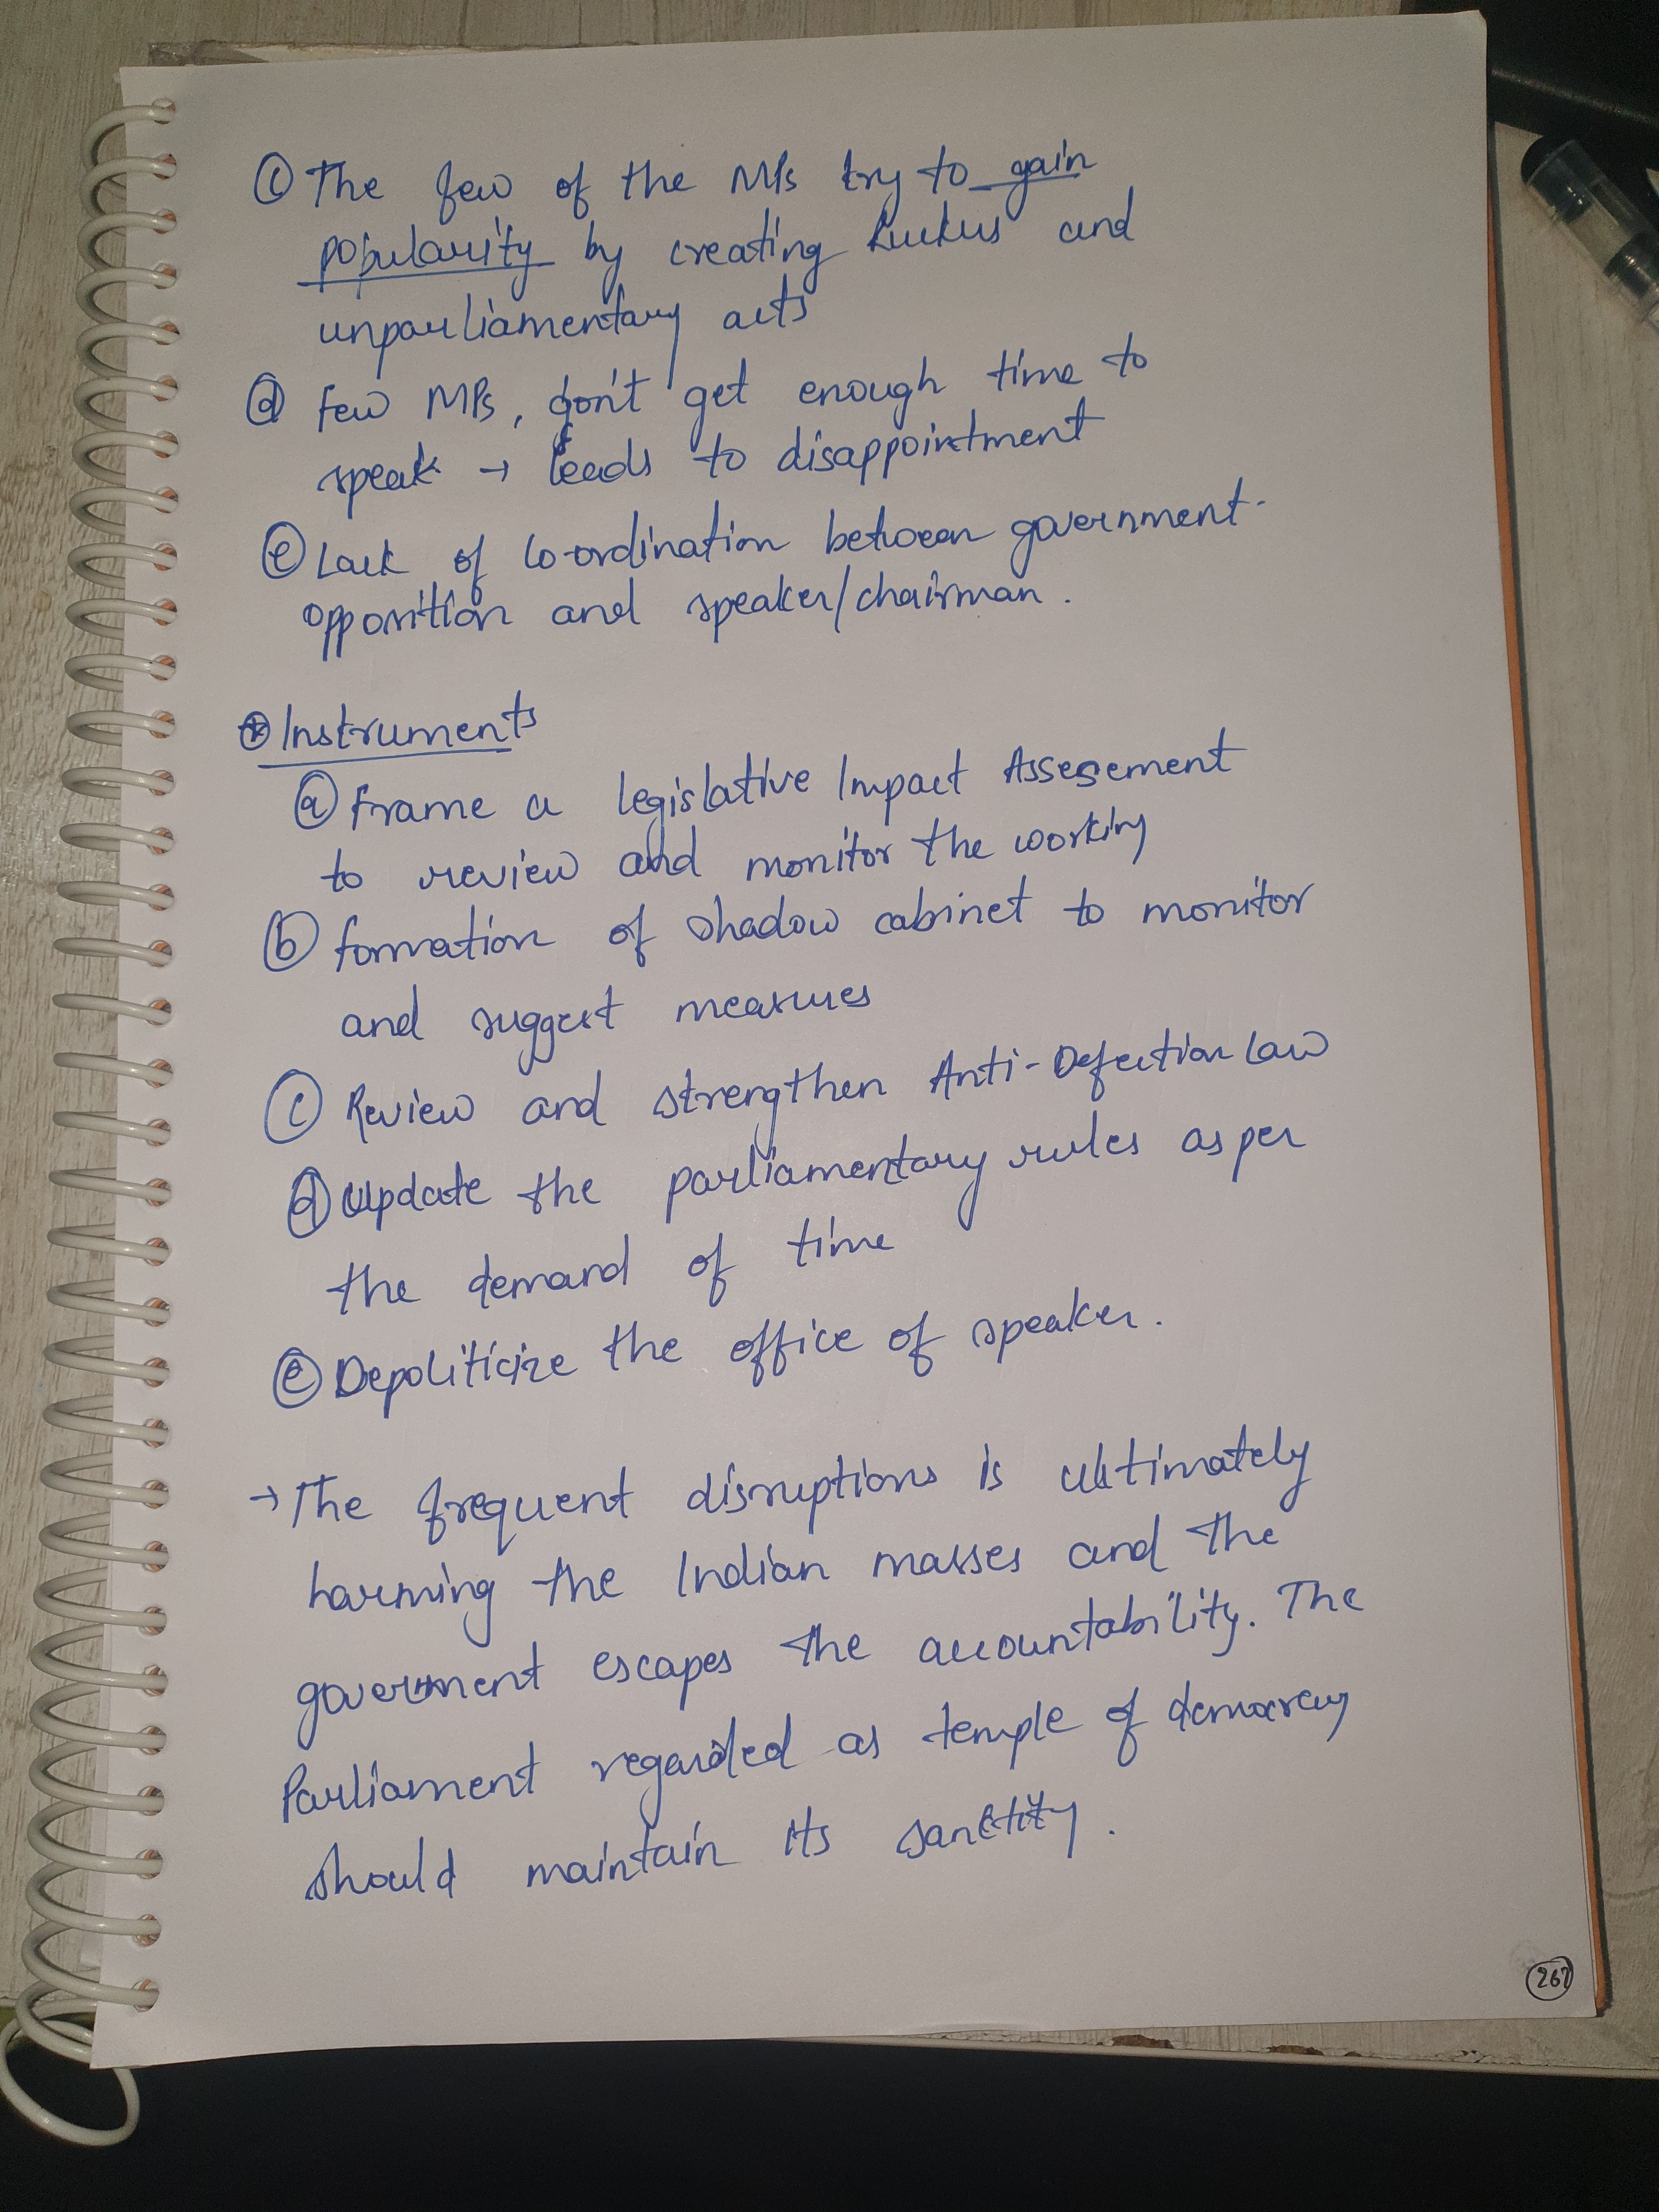 ⓒ The few of the MPs try to gain
popularity by creating Ruckus and
unparliamentary acts
ⓓ Few MPs, don't get enough time to
speak → leads to disappointment
ⓔ Lack of co-ordination between government-
opposition and speaker/chairman.
⊛ Instruments
ⓐ Frame a legislative Impact Assesement
to review and monitor the working
ⓑ formation of shadow cabinet to monitor
and suggest measures
ⓒ Review and strengthen Anti-Defection law
ⓓ Update the parliamentary rules as per
the demand of time
ⓔ Depoliticize the office of speaker.
→ The frequent disruptions is ultimately
harming the Indian masses and the
government escapes the accountability. The
Parliament regarded as temple of democracy
should maintain its sanctity.